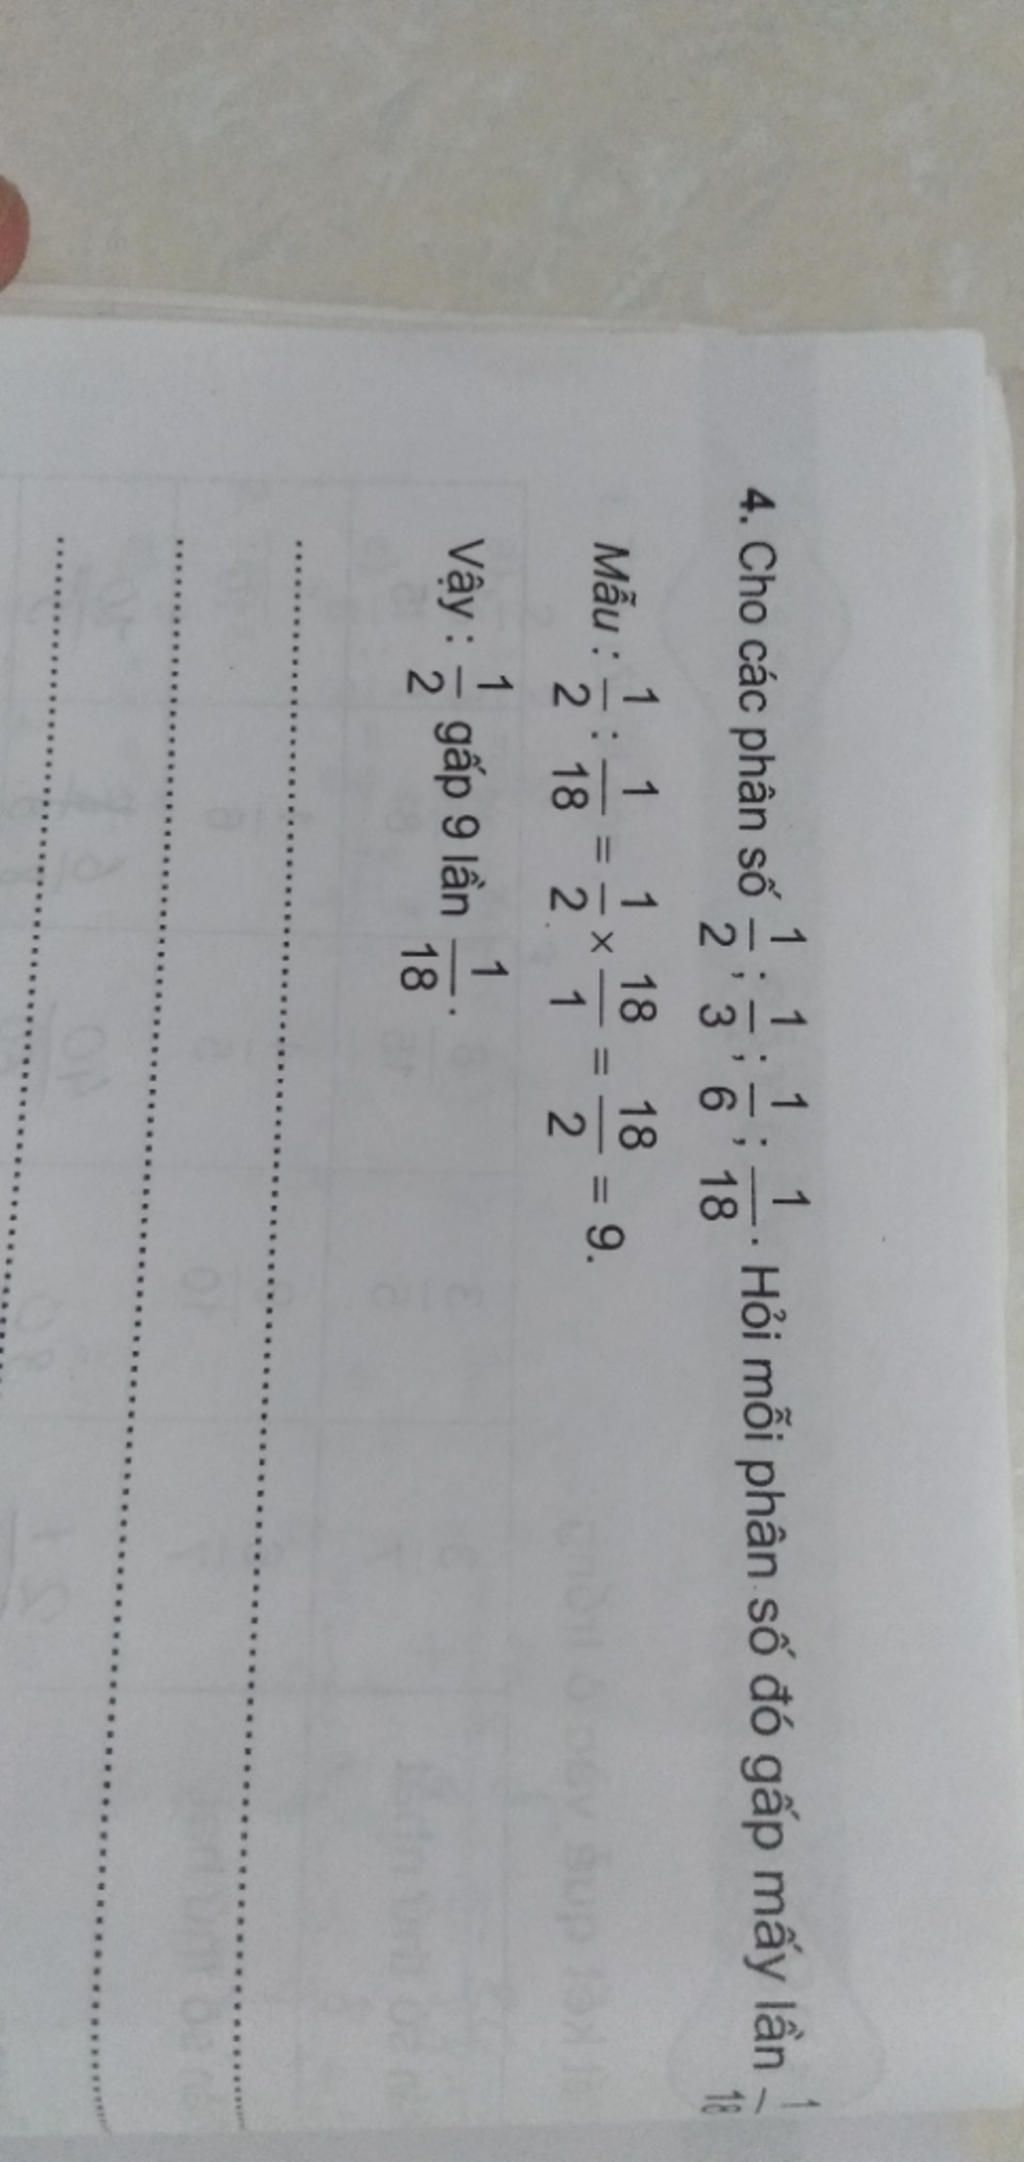 4. Cho các phân số 1/2 ; 1/3 ; 1/6 ; 1/18 . Hỏi mỗi phân số đó gấp mấy lần 1/18
Mẫu : 1/2 : 1/18 = 1/2 × 18/1 = 18/2 = 9.
Vậy : 1/2 gấp 9 lần 1/18 .